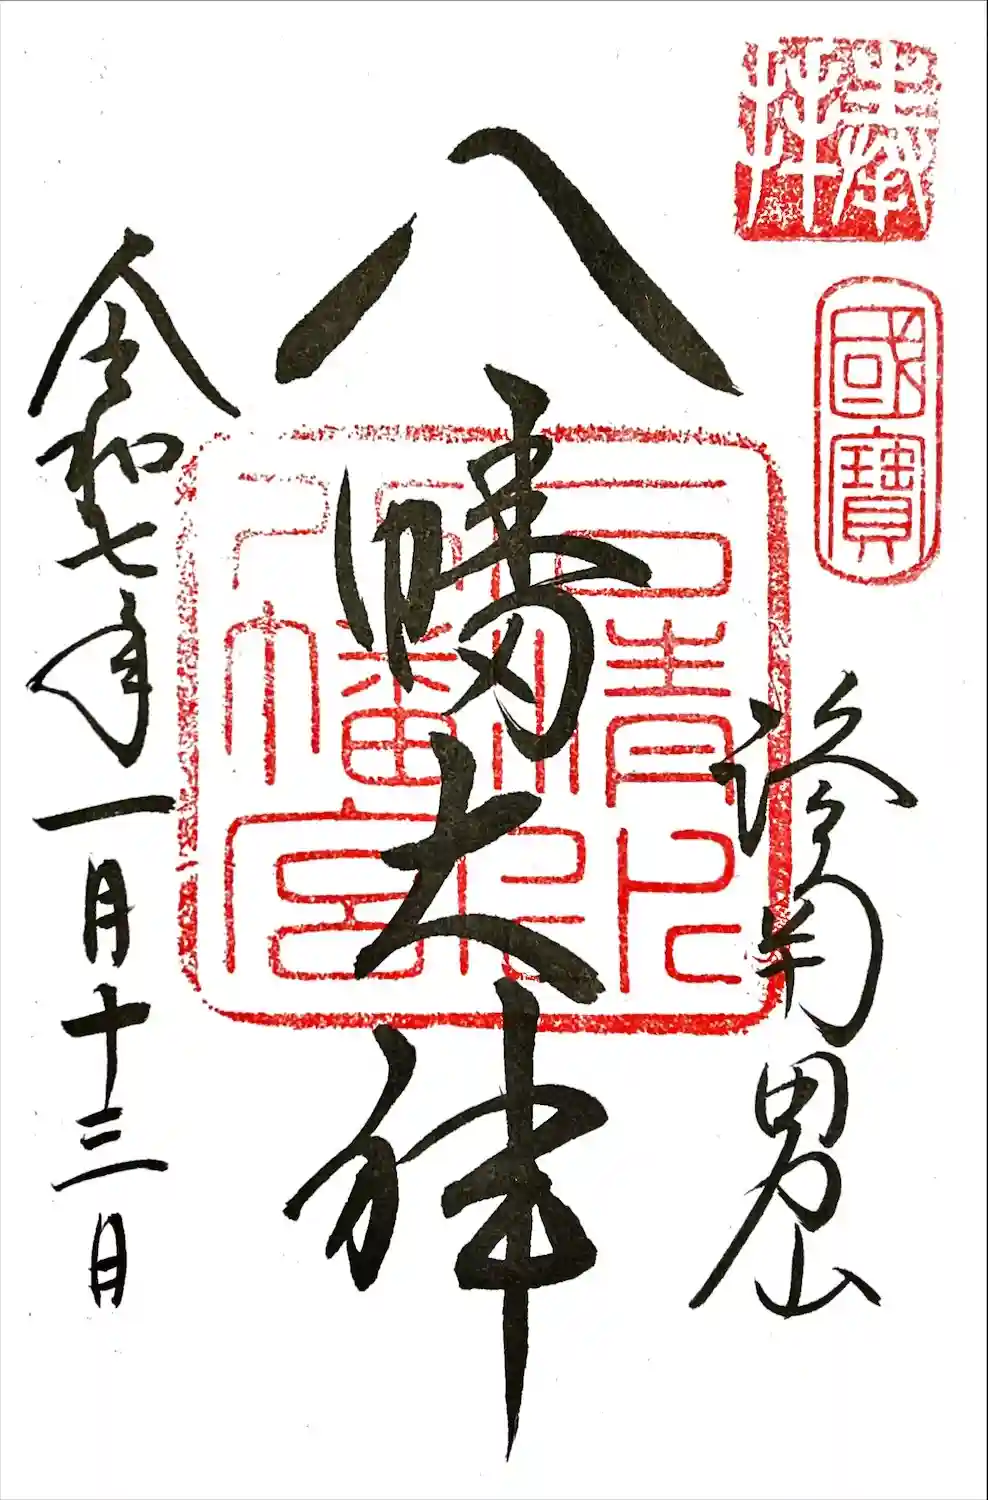 奉拜
國寶
洛南男山
八幡大神
石清水
八幡宮
令和七年一月十三日